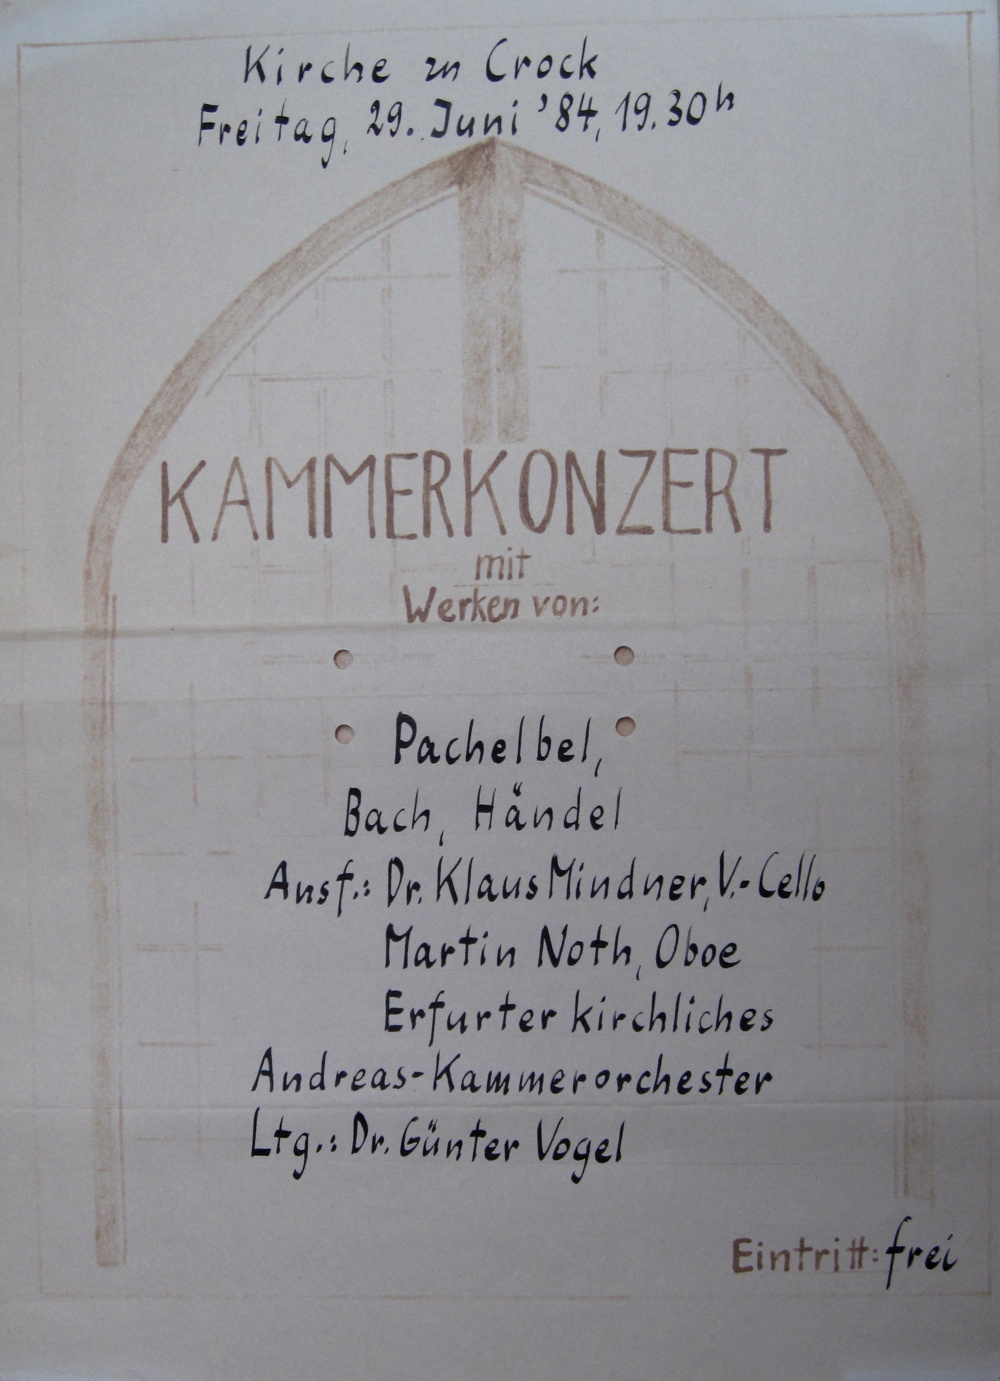 Kirche zu Crock
Freitag, 29. Juni '84, 19.30h
KAMMERKONZERT
mit
Werken von:
Pachelbel,
Bach, Händel
Ausf.: Dr. Klaus Mindner, V.-Cello
Martin Noth, Oboe
Erfurter kirchliches
Andreas-Kammerorchester
Ltg.: Dr. Günter Vogel
Eintritt: frei